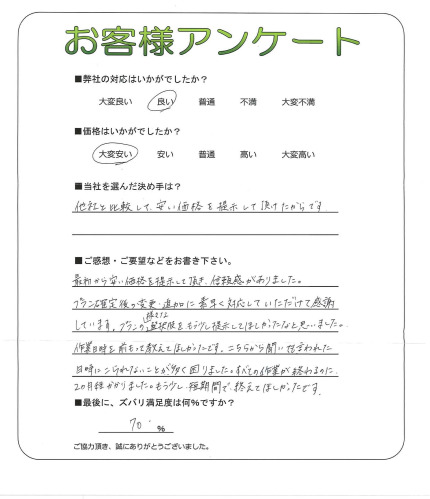 お客様アンケート
■弊社の対応はいかがでしたか？
大変良い 良い 普通 不満 大変不満
■価格はいかがでしたか？
大変安い 安い 普通 高い 大変高い
■当社を選んだ決め手は？
他社と比較して、安い価格を提示して頂けたからです
■ご感想・ご要望などをお書き下さい。
最初から安い価格を提示して頂き、信頼感がありました。
プラン確定後の変更・追加に素早く対応していただけて感謝
しています。プランの選択肢をもう少し提示してほしかったなと思いました。
作業日時を前もって教えてほしかったです。こちらから聞い 言われた
日時にこられないことが多く困りました。すべての作業が終わるのに、
2カ月程かかりました。もう少し短期間で、終えてほしかったです。
■最後に、ズバリ満足度は何％ですか？
70 %
ご協力頂き、誠にありがとうございました。